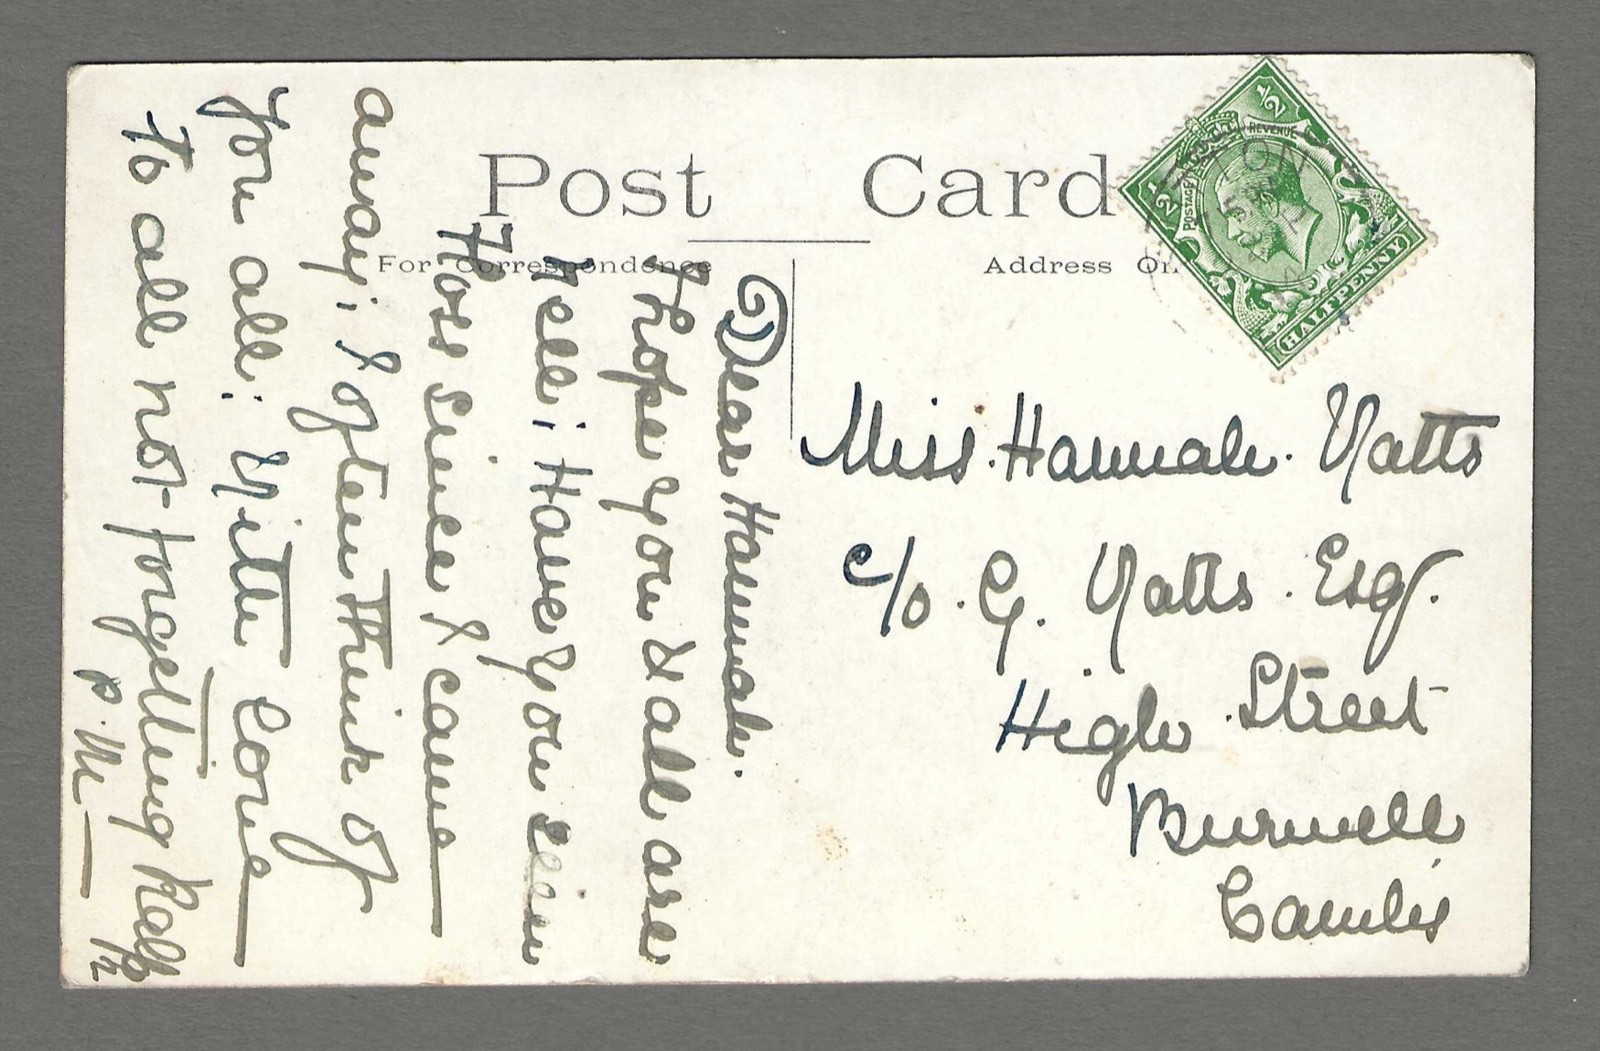 Post Card
For Correspondence
Address On
Dear Hannah.
I hope you & all are
well; Have you seen
Floss since I came
away; I often think of
you all; With Love
To all not forgetting Ralph
P. M
Miss. Hannah. Watts
c/o. G. Watts. Esq.
High Street
Burwell
Cambs
POSTAGE
REVENUE
HALFPENNY
1/2
1/2